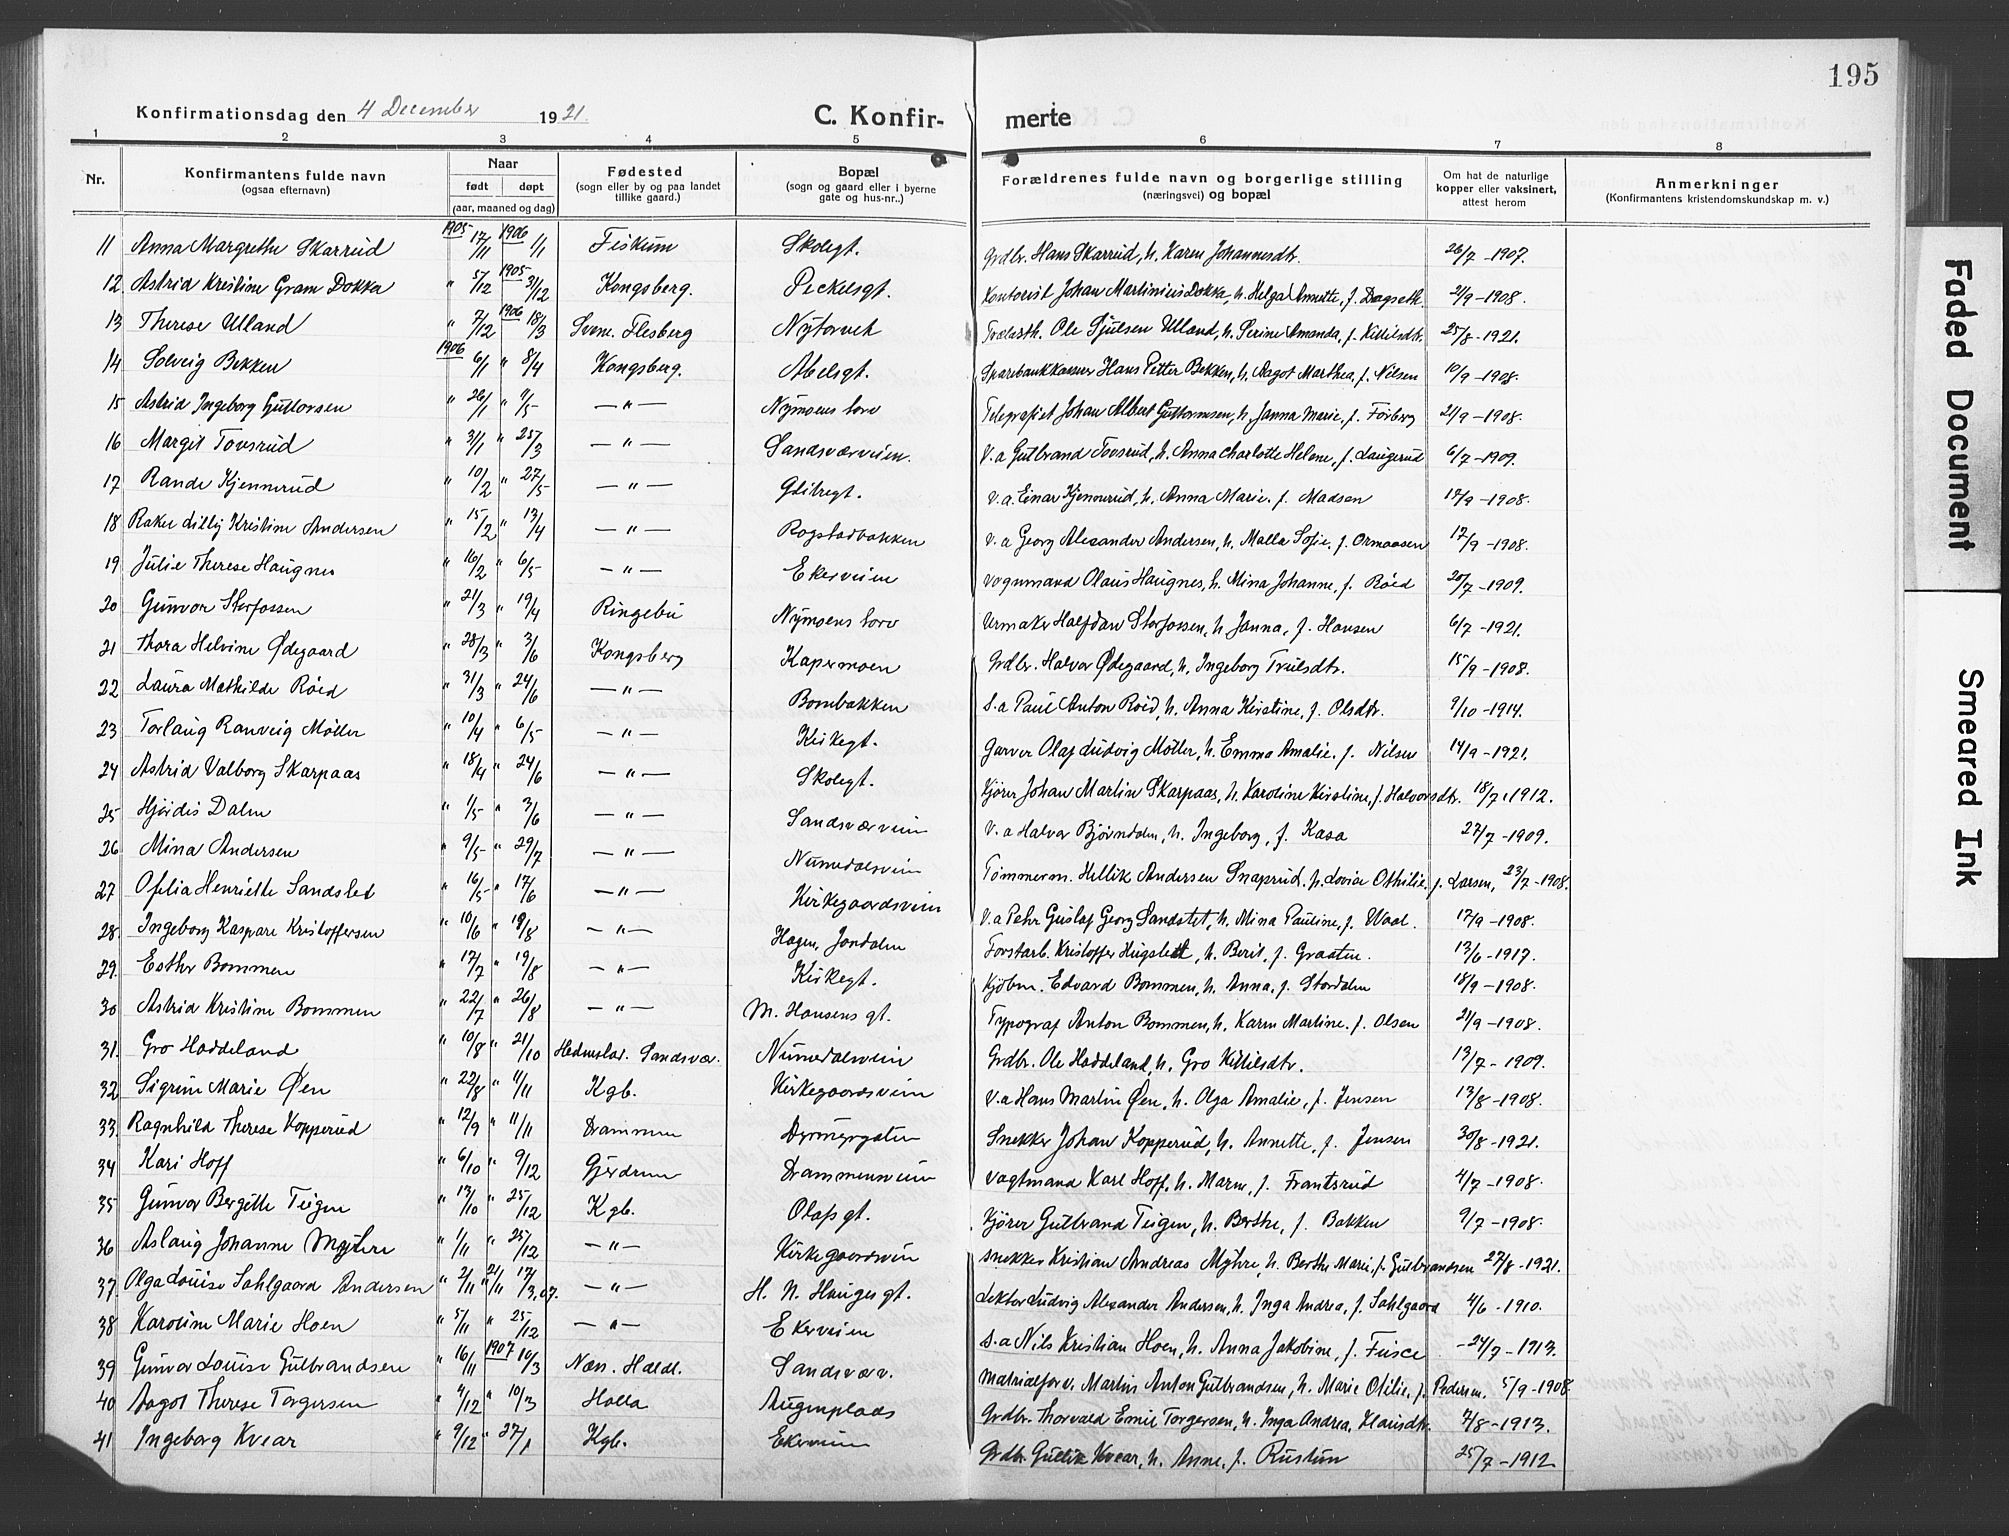 195
Konfirmationsdag den 4 December 1921. C. Konfirmerte
1 2 3 4 5 6 7 8
Nr. Konfirmantens fulde navn (ogsaa efternavn) Naar født døpt (aar, maaned og dag) Fødested (sogn eller by og paa landet tillike gaard.) Bopæl (sogn og gaard eller i byerne gate og hus-nr..) Forældrenes fulde navn og borgerlige stilling (næringsvei) og bopæl Om hat de naturlige kopper eller vaksinert, attest herom Anmerkninger (Konfirmantens kristendomskundskap m. v.)
11 Anna Margrethe Skarrud 1905 17/11 1906 1/1 Fiskum Skolegt. Grdbr. Hans Skarrud, h. Karen Johannesdtr. 26/7 - 1907.
12. Astrid Kristine Gram Dokka " 5/12 1905 31/12 Kongsberg. Peckelsgt. Kontorist Johan Martinius Dokka, h. Helga Annette, f. Dagseth. 21/9 - 1908.
13 Therese Ulland " 7/12 1906 18/3 Svene. Flesberg Nytorvet Ole Sjulsen Ulland, h. Serine Amanda, f. Kittilsdtr. 25/8 - 1921.
14 Solveig Bekken 1906 6/1 " 8/4 Kongsberg. Abelsgt. Sparebankkasserer Hans Petter Bekken, h. Aagot Marthea, f. Nilsen 10/9 - 1908.
15 Astrid Ingeborg Guttormsen " 26/1 " /5 — " — Nymoens torv Telegrafist Johan Albert Guttormsen, h. Janna Marie, f. Forberg 21/9 - 1908.
16 Margit Tovsrud " 31/1 " 25/3 — " — Sandsværveien. V.a Gulbrand Tovsrud, h. Anna Charlotte Helene, f. Laugerud 6/7 - 1909.
17 Randi Kjennerud " 10/2 " 27/5 — " — Glitregt. V.a. Einar Kjennerud, h. Anna Marie, f. Madsen /9 - 1908.
18 Lilly Kristine Andersen " 15/2 " 13/4 — " — Rogstadbakken V.a Georg Alexander Andersen, h. Malla Sofie, f. Ormaasen 17/9 - 1908.
19 Julie Therese Haugnes " 16/2 " 6/5 — " — Ekerveien Vognmand Olaus Haugnes, h. Mina Johanne, f. Røed 20/7 - 1909.
20 Gunvor Storfossen " 21/3 " 19/4 Ringebu Nymoens torv Urmaker Halfdan Storfossen, h. Janna, f. Hansen 6/7 - 1921.
21 Thora Helvine Ødegaard " 28/3 " 3/6 Kongsberg Kapermoen Grdbr. Halvor Ødegaard, h. Ingeborg Trulsdtr. 15/9 - 1908.
22 Laura Mathilde Røed " 31/3 " 24/6 — " — Bombakken S.a Paul Anton Røed, h. Anna Kirstine, f. Olsdtr. 9/10 - 1914.
23 Torlaug Ranveig Møller " 10/4 " 6/5 — " — Kirkegt. Garver Olaf Ludvig Møller, h. Emma Amalie, f. Nilsen 14/9 - 1921.
24 Astrid Valborg Skarpaas " 18/4 " 24/6 — " — Skolegt. Kjører Johan Martin Skarpaas, h. Karoline Kirstine, f. Halvorsdtr. 18/7. 1912.
25 Hjørdis Dalen " 1/5 " 3/6 — " — Sandsværveien V.a Halvor Bjørndalen, h. Ingeborg, f. Kasa 27/7 - 1909.
26 Mina Andersen " 9/5 " 29/7 — " — Numedalsveien Tømmerm. Hellik Andersen Snaprud, h. Lovise Othilie, f. Larsen, 23/7 - 1908.
27 Ofelia Henriette Sandstet " 16/5 " 17/6 — " — Kirkegaardsveien V.a Pehr Gustaf Georg Sandstet, h. Mina Pauline, f. Waal. 17/9 - 1908.
28. Ingeborg Kaspare Kristoffersen " 10/6 " 19/8 — " — Hagen, Jondalen Forstarb. Kristoffer Hugstett, h. Berit, f. Graaten. 13/6 - 1917.
29. Esther Bommen " 17/7 " 19/8 — " — Kirkegt. Kjøbm. Edvard Bommen, h. Anna, f. Stordalen 18/9 - 1908.
30 Astrid Kristine Bommen " 22/7 " 26/8 — " — M. Hansens gt. Typograf Anton Bommen, h. Karen Martine, f. Olsen 21/9 - 1908.
31. Gro Haddeland " 10/8 " 21/10 Hedenstad. Sandsvær. Numedalsveien Grdbr. Ole Haddeland, h. Gro Kittilsdtr. 13/7 - 1909.
32 Sigrun Marie Øen " 22/8 " 4/11 Kgb. Kirkegaardsveien V.a Hans Martin Øen, h. Olga Amalie, f. Jensen 13/8 - 1908.
33. Ragnhild Therese Kopperud " 12/9 " 11/11 Drammen Dyrmyrgaten Snekker Johan Kopperud, h. Annette, f. Jensen 30/8 - 1921.
34 Kari Hoff " 6/10 " 9/12 Gjerdrum Drammensveien Vagtmand Karl Hoff, h. Maren, f. Frantsrud 4/7 - 1908.
35 Gunvor Bergitte Teigen " 13/10 " 25/12 Kgb. Olafsgt. Kjører Gulbrand Teigen, h. Berthe, f. Bakken 9/7 - 1908.
36 Aslaug Johanne Myhre " 1/11 " 25/12 — " — Kirkegaardsveien Snekker Kristian Andreas Myhre, h. Berthe Marie, f. Gulbrandsen 27/8 - 1921.
37. Olga Louise Sahlgaard Andersen " 2/11 " 21/11 17/3.07. — " — H. N. Hauges gt. Lektor Ludvig Alexander Andersen, h. Inga Andrea, f. Sahlgaard 4/6 - 1910.
38 Karoline Marie Hoen " 5/11 " 25/12 — " — Ekerveien S.a Nils Kristian Hoen, h. Anna Jakobine, f. - 24/7 - 1913.
39 Gunvor Louise Gulbrandsen " 16/11 1907 10/3 Næs. Hadel. Sandsværv. Matrialforv. Martin Anton Gulbrandsen, h. Marie Otilie, f. Pedersen. 5/9 - 1908.
40 Aagot Therese Torgersen " 4/12 " 10/3 Holla Augenplads Grdbr. Thorvald Emil Torgersen, h. Inga Andrea, Klausdtr. 7/8 - 1913.
41 Ingeborg Kvear " 9/12 " 27/1 Kgb. Ekerveien Grdbr. Gullik Kvear, h. Anne, f. Rustun 25/7 - 1912
Faded Document
Smeared Ink